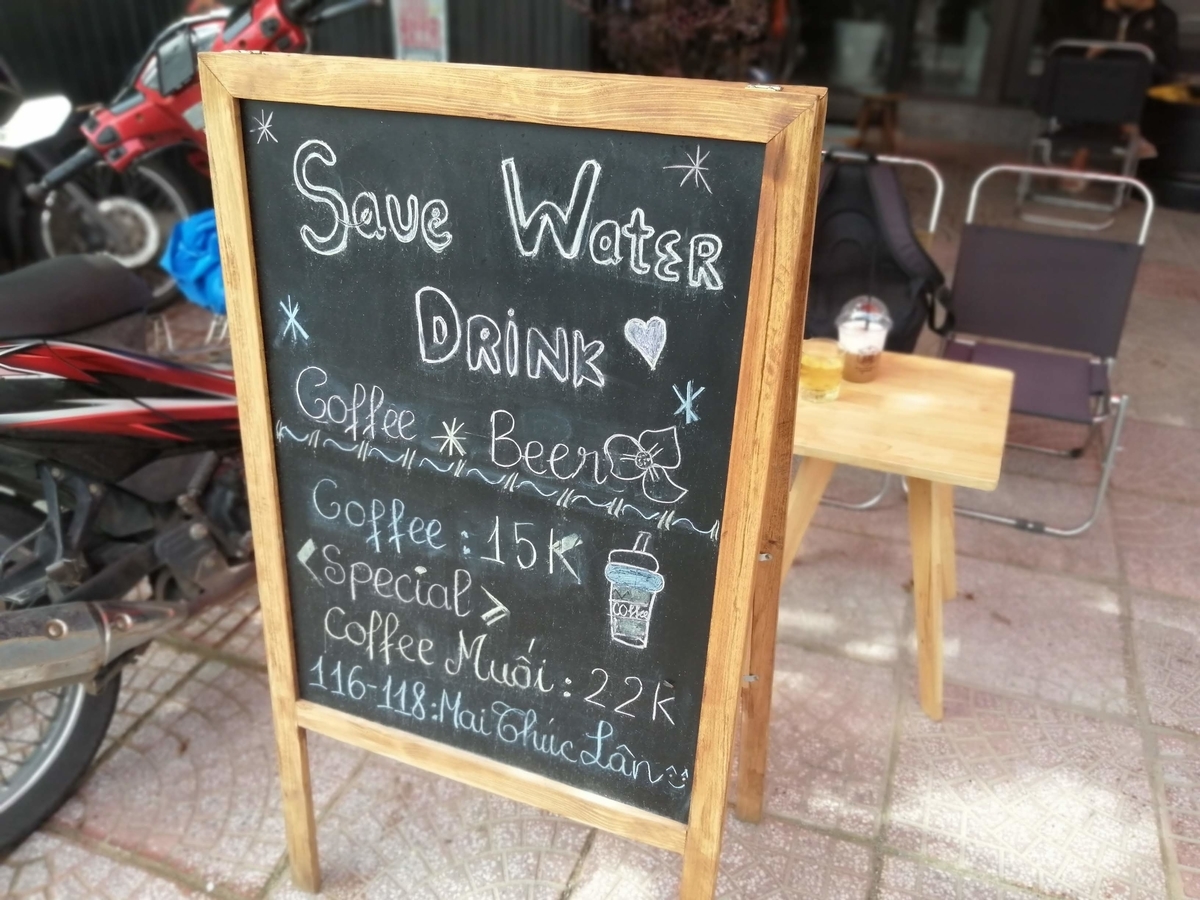 Save Water
Drink
Coffee * Beer
Coffee : 15K
<Special>
Coffee
Coffee Muối : 22K
116-118: Mai Thúc Lân